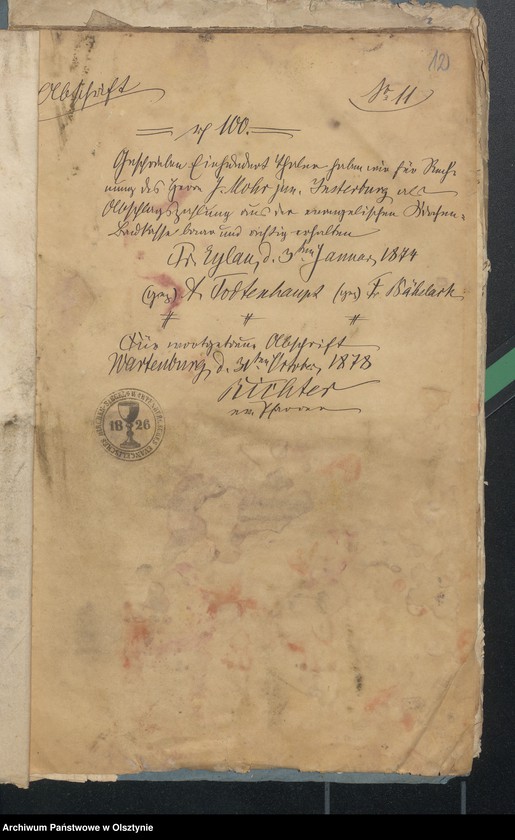 12
Abschrift
No 11
100.
Geschrieben Einhundert Thaler haben wir für Rech-
nung des Herrn J. Mohr jun. Insterburg als
Abschlagszahlung aus der evangelischen
baar und richtig erhalten
Fr. Eylau, d. 3ten Januar 1874
(gez) A Todtenhaupt (gez) F.
Für wortgetreue Abschrift
Wartenburg, d. 31ten October 1878
Richter
ev. Pfarrer
1826
Archiwum Państwowe w Olsztynie